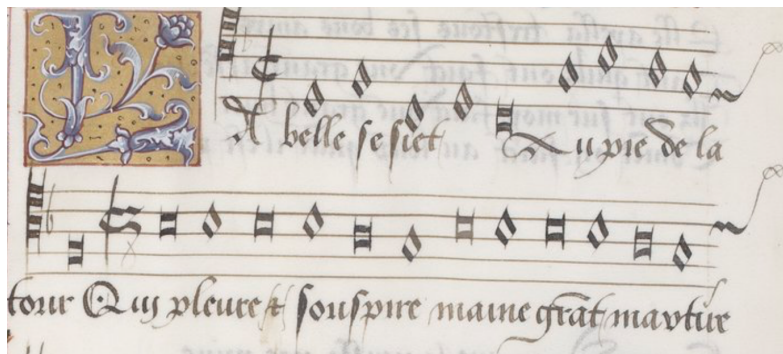 L A belle se siet Au pie de la
tour Qui pleure et souspire maine grãt martire